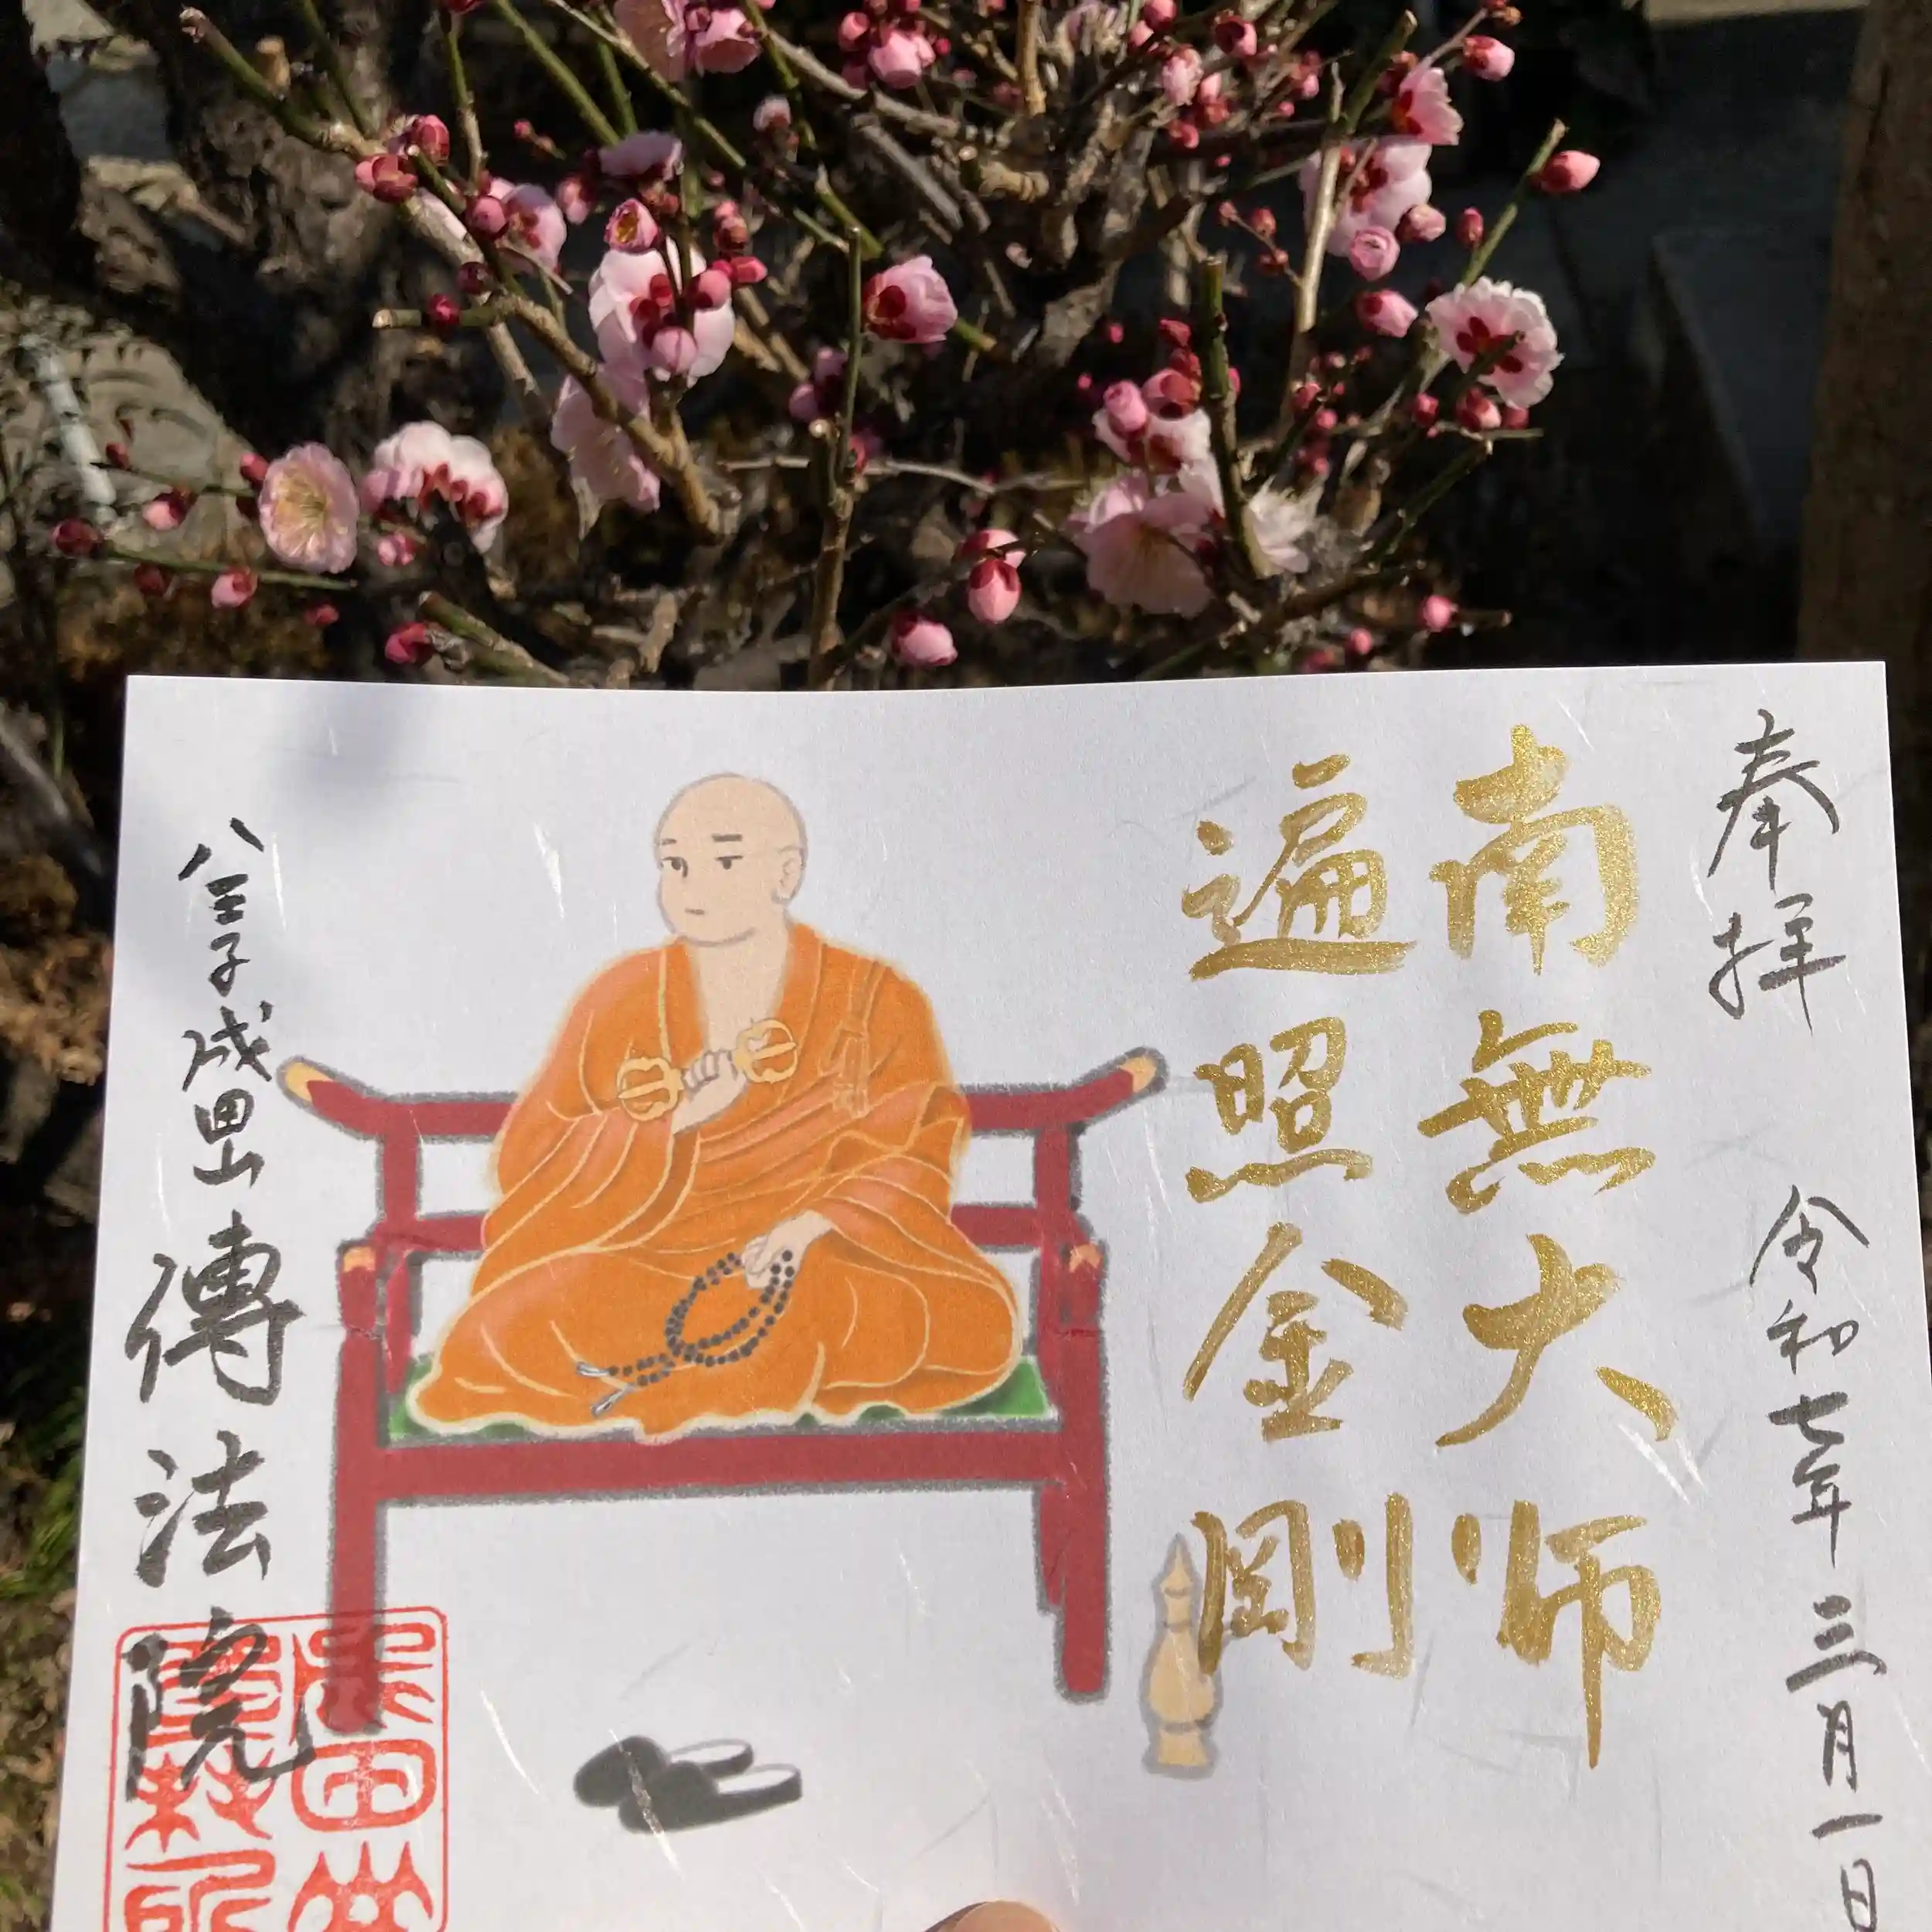 奉拝 令和七年三月一日
南無大師
遍照金剛
八王子成田山傳法院